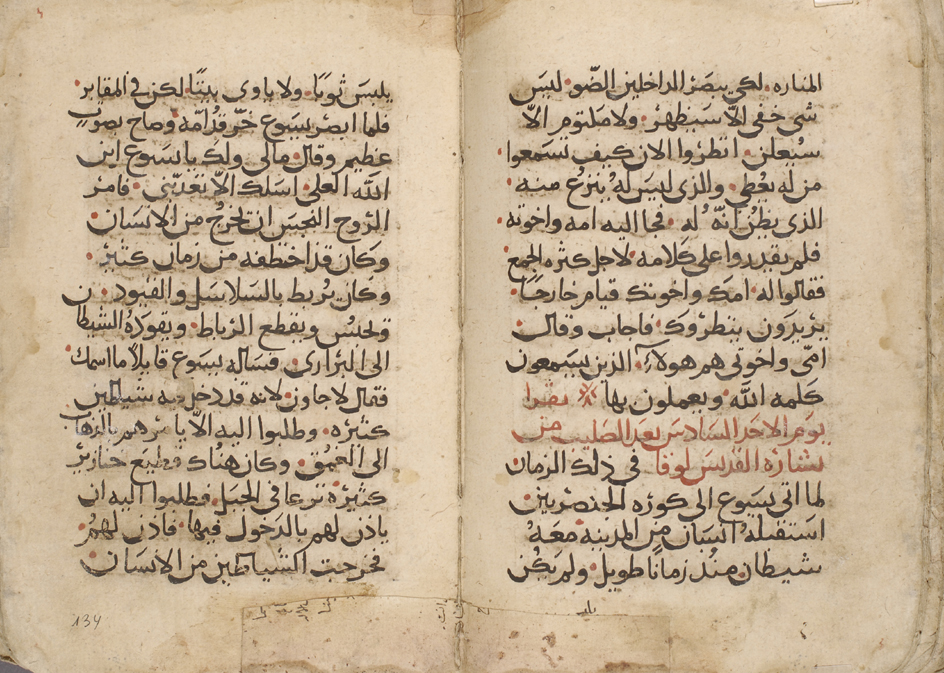 المناره. لكي يبصر الداخلين الضّو. ليس
شي خفي الاّ سيظهر. ولا مكتوم الاّ
سيُعلن. انظروا الان كيف تسمعوا.
من له يُعطي. والذي ليس لهُ يُنزع منه
الذي يظن انّه له. فجا اليه امه واخوته.
فلم يقدروا على كلامه. لاجل كثره الجمع
فقالوا له. امك واخوتك قيام خارجًا.
يريدون ينظروك. فاجاب وقال.
امّي واخوتي هم هولاء. الذين يسمعون
كلمه الله. ويعملون بها يقرا
يوم الاحد السادس بعد الصليب من
بشاره القديس لوقا في ذلك الزمان
لما اتى يسوع الى كوره الجنصريين.
استقبله انسان من المدينه معهُ
شيطان منذ زمانًا طويل. ولم يكن
يلبس ثوبًا. ولا ياوي بيتًا. لكن في المقابر.
فلما ابصر يسوع خرّ قدامه وصاح بصوتٍ
عظيم وقال. مالي ولك يا يسوع ابن
الله العلي. اسلك الاّ تعذبني. فامر
الروح النجس ان تخرج من الانسان.
وكان قد اختطفه من زمان كثير.
وكان يُربط بالسلاسل والقيود.
ويُحبس ويقطع الرباط. ويقوده الشيطان
الى البراري. فساله يسوع قايلاً ما اسمك.
فقال لاجاون. لانه قد دخل فيه شياطين
كثيره. وطلبوا اليه الاّ يامرهم بالذهاب
الى العمق. وكان هناك قطيع خنازير
كثيرة ترعا في الجبل. فطلبوا اليه ان
ياذن لهم بالدخول فيها. فاذن لهم.
فخرجت الشياطين من الانسان.
134